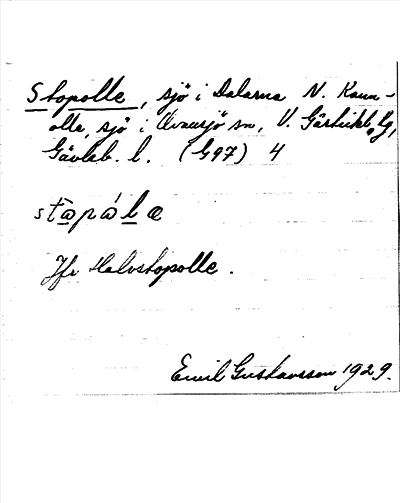 Stopolle, sjö i Dalarna N. Kann-
olle, sjö i Årsunda sn, V. Gästrikl.,
Gävleb. l. (G97) 4
Jfr Halvstopolle.
Emil Gustavsson 1929.